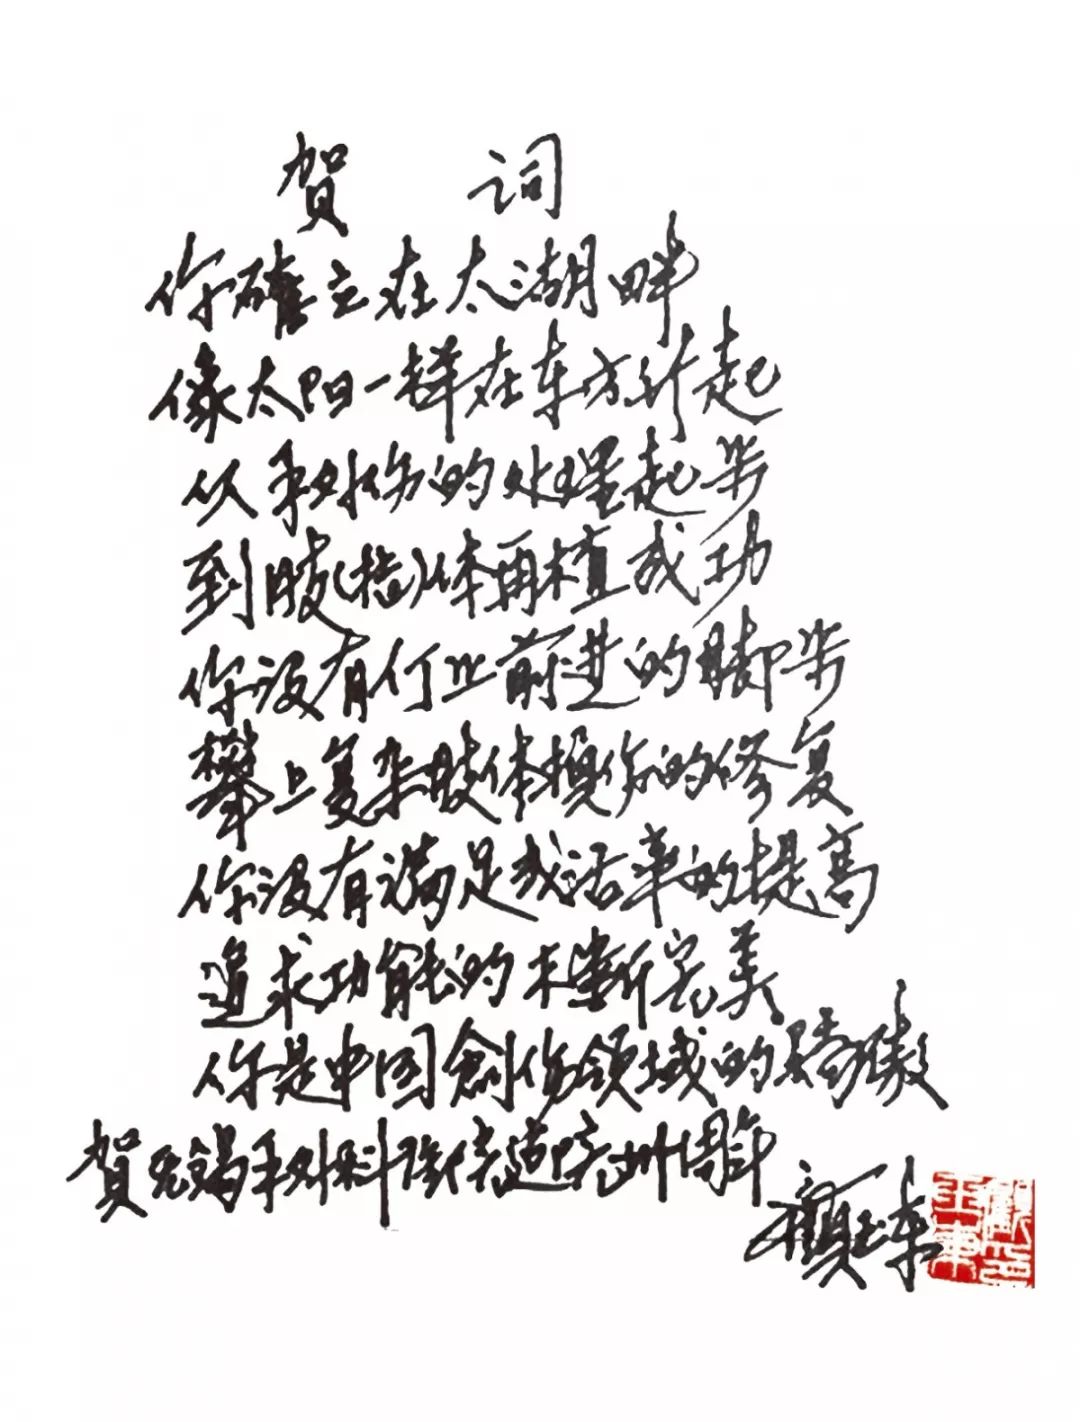 贺 词
你確立在太湖畔
像太阳一样在东方升起
从手外伤的处理起步
到肢(指)体再植成功
你没有停止前进的脚步
攀上复杂肢体损伤的修复
你没有满足成活率的提高
追求功能的不断完美
你是中国創伤领域的骄傲
賀无锡手外科建院卅周年
顾玉东
顧印玉東